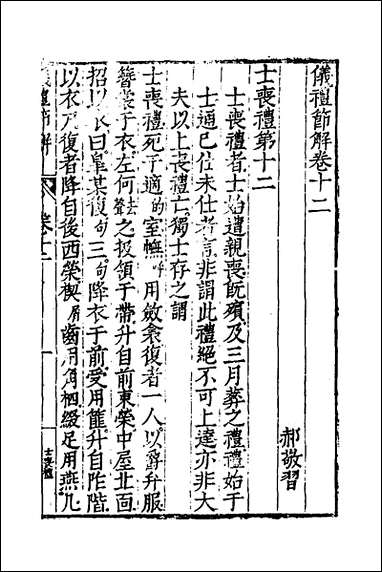 儀禮節解卷十二
郝敬習
士喪禮第十二
士喪禮者士始遭親喪旣殯及三月葬之禮禮始于
士通已仕未仕者言非謂此禮絕不可上達亦非大
夫以上喪禮亡獨士存之謂
士喪禮死于適的室幠呼用斂衾復者一人以爵弁服
簪裳于衣左何去聲之扱領于帶升自前東榮中屋北面
招以衣曰臯某復句三句降衣于前受用篚升自阼階
以衣尸復者降自後西榮楔屑齒用角柶綴足用燕几
儀禮節解
卷十二
一
士喪禮